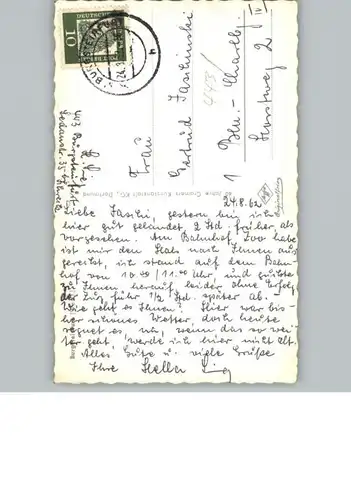 24.8.62
Liebe Jasihi, gestern bin ich
hier gut gelandet 2 Std. früher, als
vorgesehen. Am Bahnhof Zoo habe
ist mir den Hals nach Ihnen aus
gereckt, ich stand auf dem Bahn
hof von 10.40/11.40 Uhr, und guckte
zu Ihnen herauf leider ohne Erfolg,
der Zug fuhr 1/2 Std. später ab. –
Wie geht es Ihnen? Hier war bis-
her schönes Wetter, doch heute
regnet es, na, wenn das so wei-
ter geht, werde ich hier nicht alt.
Alles Gute u. viele Grüße
Ihre Stella
Frau
Gertrud
1 Bln.-Charlbg.
Horstweg 2
IV
443/
10
DEUTSCHE
Cramers Kunstanstalt KG., Dortmund